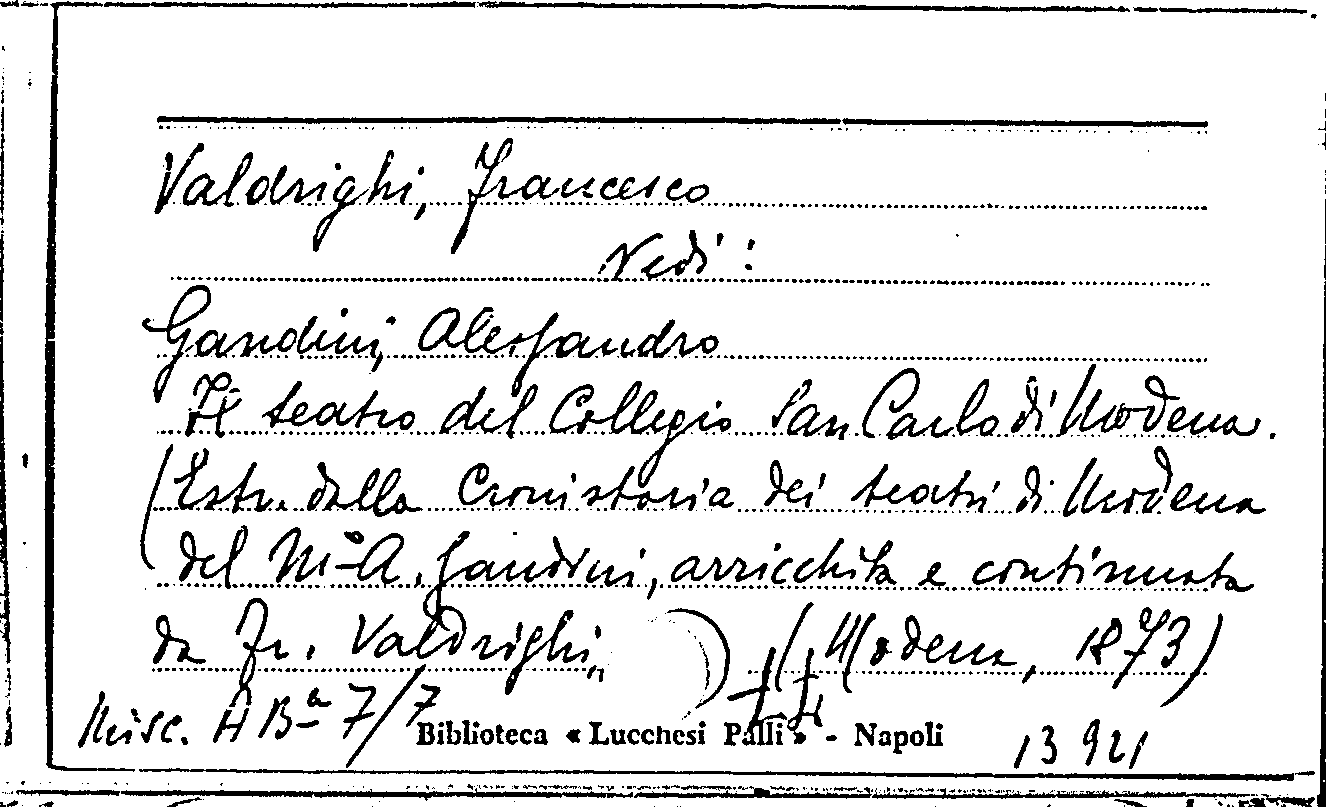 Valdrighi, Francesco
Vedi:
Gandini, Alessandro
Il teatro del Collegio San Carlo di Modena.
(Estr. dalla Cronistoria dei teatri di Modena
del M.° A. Gandini, arricchita e continuata
da Fr. Valdrighi,) (Modena, 1873)
Misc. A Bª 7/7
Biblioteca « Lucchesi Palli » - Napoli
13 921